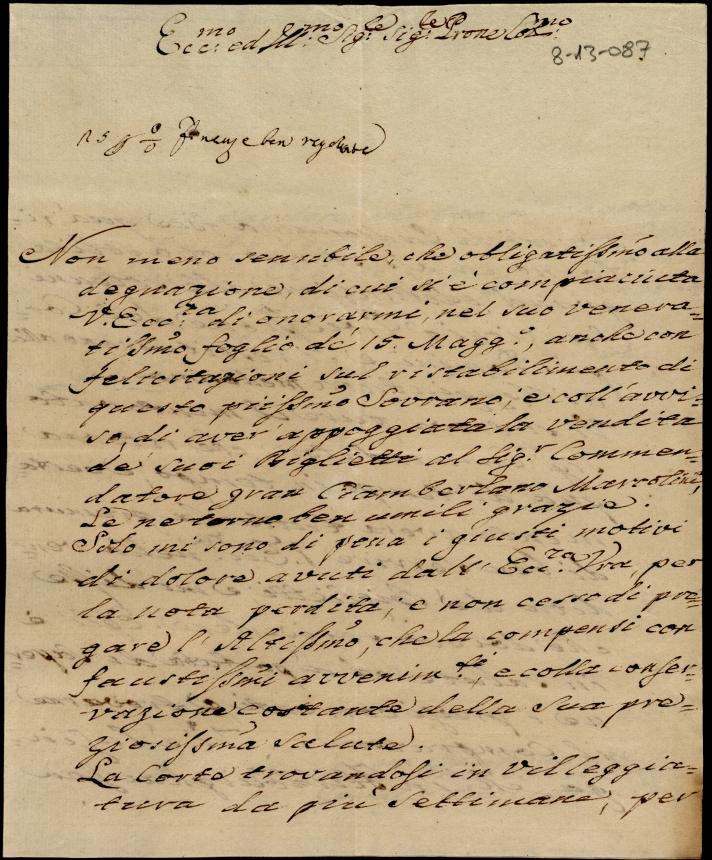 Ecc.mo ed Ill.mo Sig.re Sig.re Prone Col.mo
8-13-087
ben regolate
Non meno sensibile, che obligatissmo alla
degnazione, di cui si è compiaciuta
V. Ecc.za di onorarmi, nel suo venera=
tissmo foglio de' 15. Magg.o, anche con
felicitazioni sul ristabilimento di
questo piissmo Sovrano; e coll'avvi=
so, di aver appoggiata la vendita
de' suoi Biglietti al Sig.r Commen=
datore gran Ciamberlano Marcolini,
Le ne torno ben umili grazie.
Solo mi sono di pena i giusti motivi
di dolore avuti dall' Ecc.za Vra, per
la nota perdita; e non cesso di pre=
gare l'Altissmo, che la compensi con
faustissmi avvenim.ti, e colla conser=
vazione costante della Sua pre=
ziosissma salute.
La Corte trovandosi in villeggia=
tura da più Settimane, per